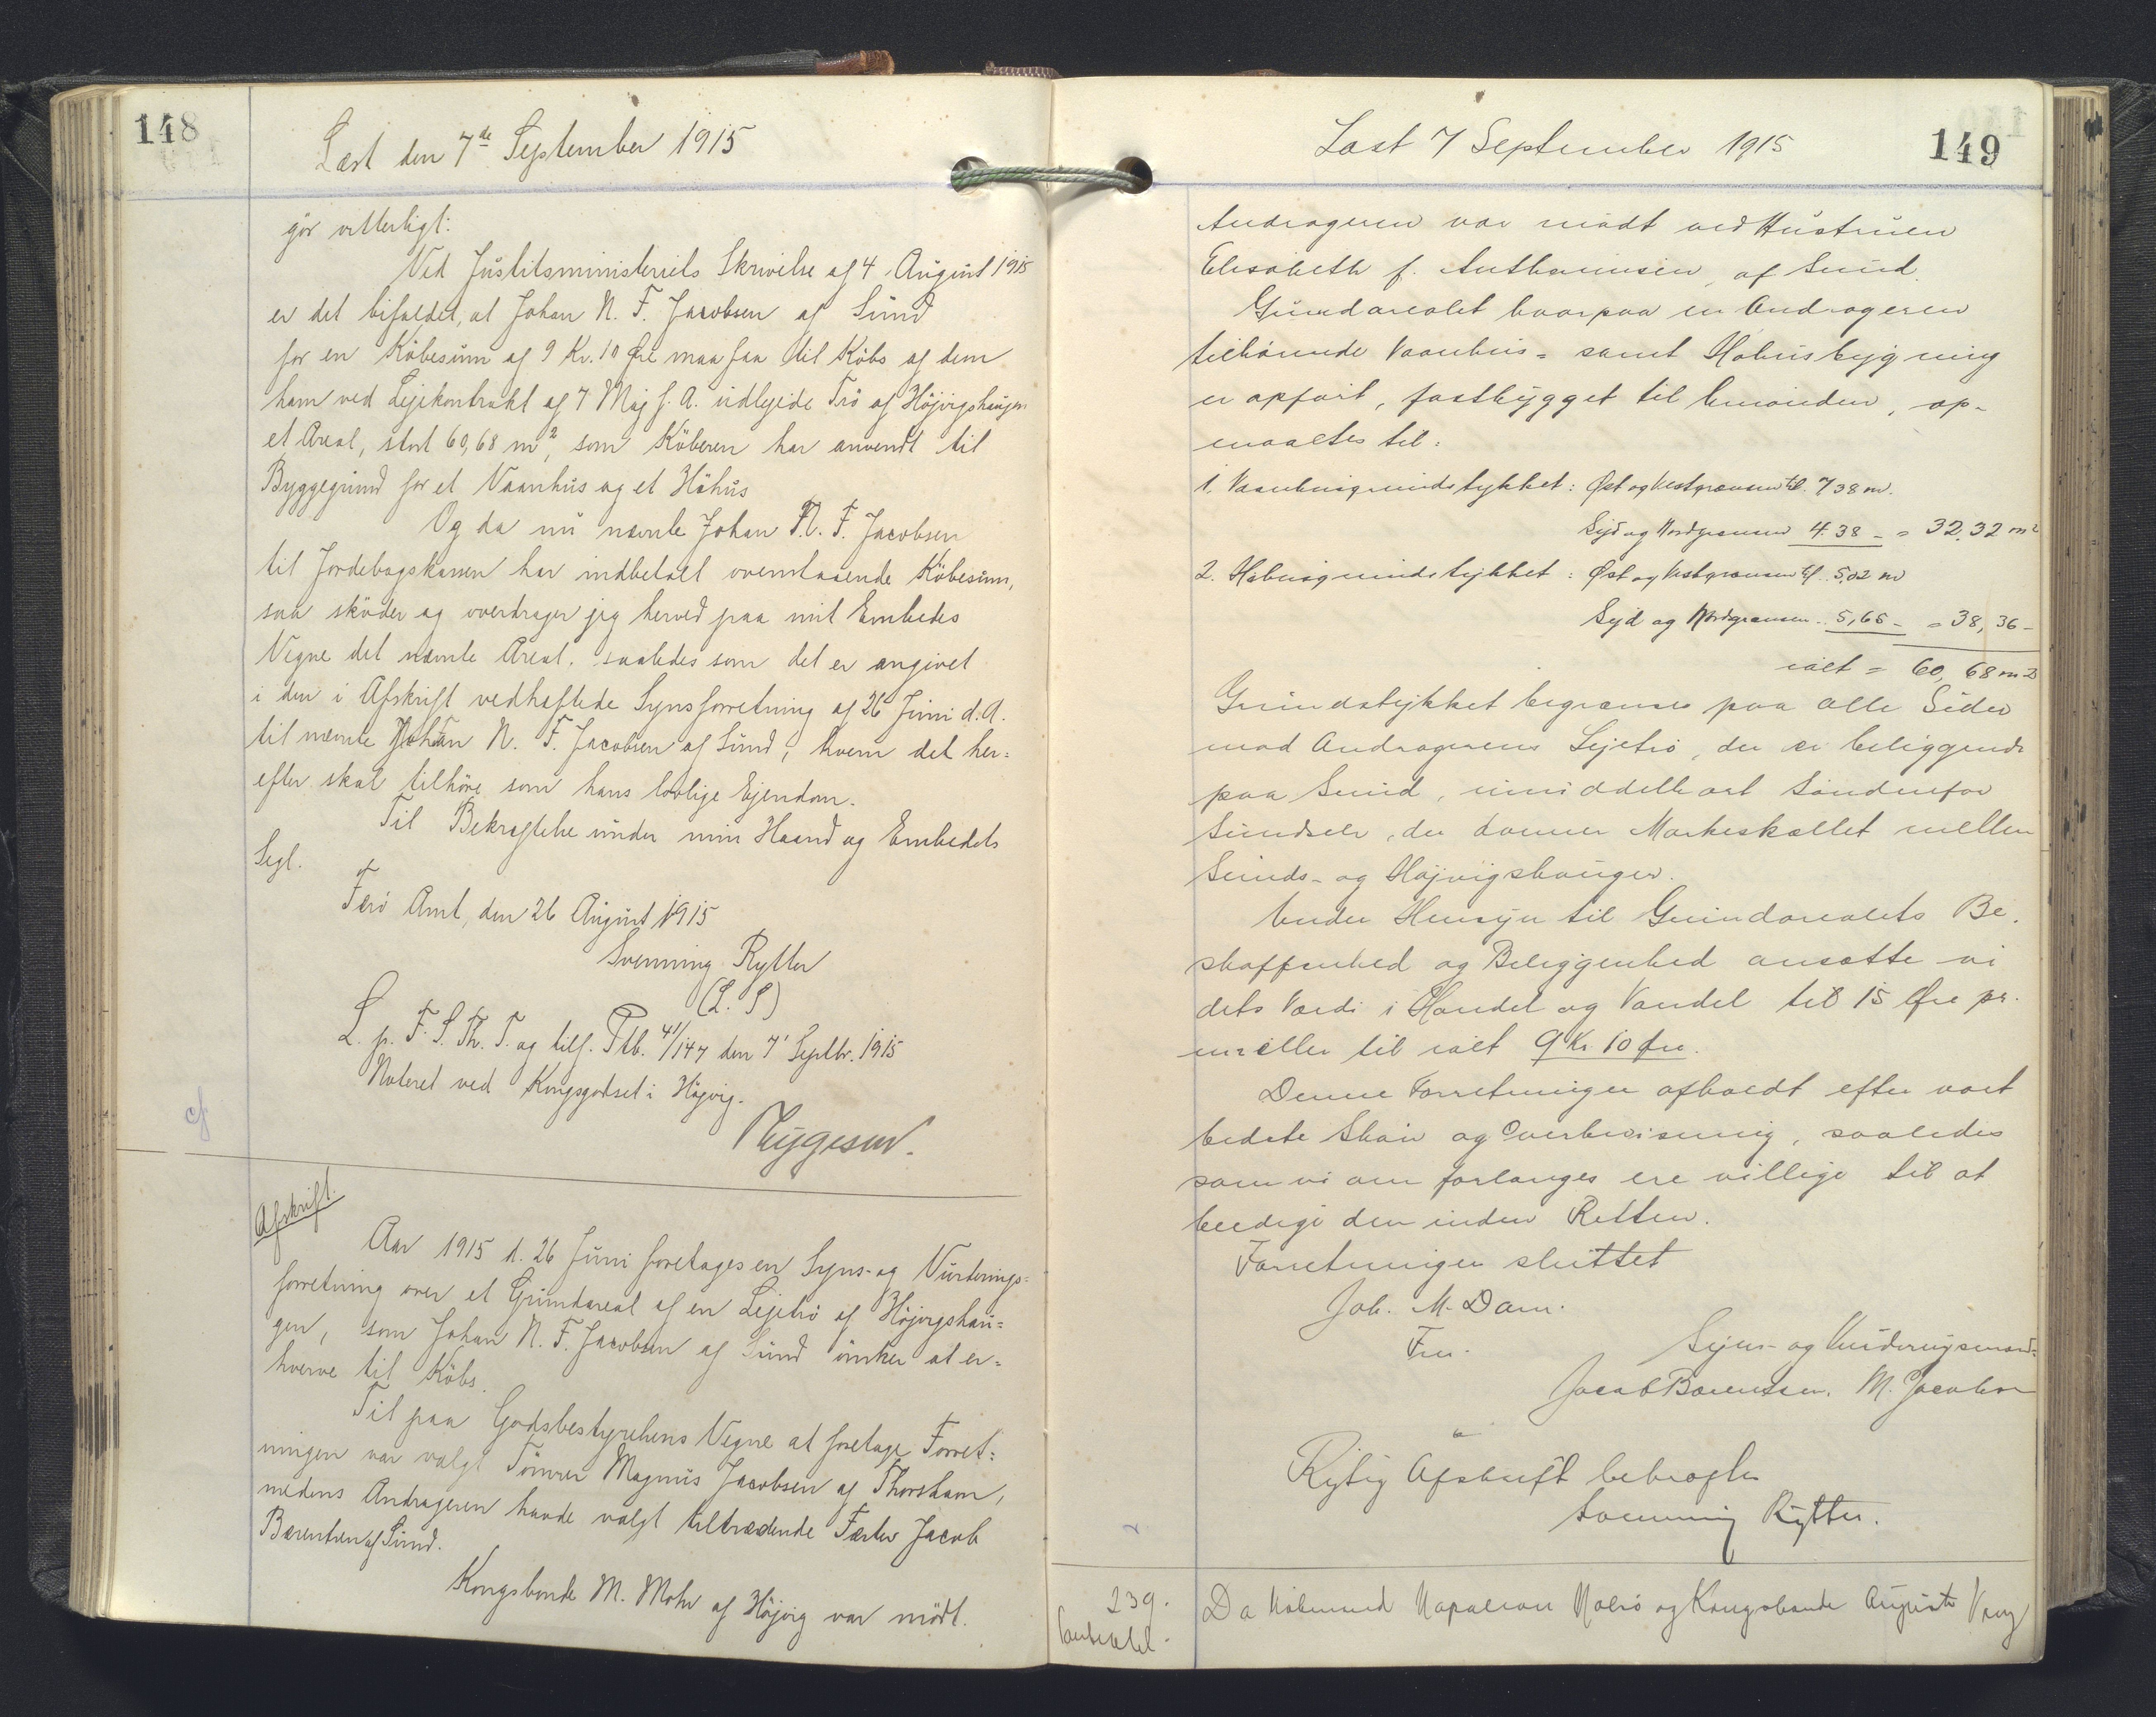 148
Læst den 7de September 1915
gör vitterligt:
Ved Justitsministeriets Skrivelse af 4. August 1915
er det bifaldet, at Johan N. F. Jacobsen af Sund
for en Köbesum af 9 Kr. 10 Öre maa faa til Köbs af dem
ham ved Lejekontrakt af 7 Maj f. A. udlejede Trö af Höjvigshaugen
et Areal, stort 60,68 m2, som Köberen har anvendt til
Byggegrund for et Vaanhus og et Höhus
Og da nu nævnte Johan N. F. Jacobsen
til Jordebogskassen har indbetalt ovenstaaende Köbesum,
saa sköder og overdrager jeg herved paa mit Embedes
Vegne det nævnte Areal, saaledes som det er angivet
i den i Afskrift vedhæftede Synsforretning af 26 Juni d. A.
til nævnte Johan N. F. Jacobsen af Sund, hvem det her=
efter skal tilhöre som hans lovlige Ejendom.
Til Bekræftelse under min Haand og Embedets
Segl.
Færö Amt, den 26 August 1915
Svenning Rytter
(L. S)
L. p. F. S. Th. T. og tilf. Ptb. 41/147 den 7' Septbr. 1915
Noteret ved Kongsgodset i Höjvig.
Thygesen.
cf
Afskrift.
Aar 1915 d. 26 Juni foretages en Syns- og Vurderings=
forretning over et Grundareal af en Lejetrö af Höjvigshau=
gen, som Johan N. F. Jacobsen af Sund önsker at er=
hverve til Köbs.
Til paa Godsbestyrelsens Vegne at foretage Forret=
ningen var valgt Tömrer Magnus Jacobsen af Thorshavn,
medens Andrageren havde valgt tiltrædende Fæster Jacob
Bærentsen af Sund.
Kongsbonde M. Mohr af Höjvig var mödt.
Læst 7 September 1915
149
Andrageren var mödt ved Hustruen
Elisabeth f. Anthoniusen, af Sund.
Grundarealet hvorpaa en Andrageren
tilhörende Vaanhus= samt Höhusbygning
er opfört, fastbygget til hinanden, op-
maaltes til:
1. Vaanhusgrundstykket: Øst og Vestgrænsen til 7 38 m.
Syd og Nordgrænsen 4.38 - = 32,32 m2
2. Höhusgrundstykket: Øst og Vestgrænsen til 5,02 m
Syd og Nordgrænsen .. 5,65 - = 38,36 -
ialt = 60,68 m2
Grundstykket begrænses paa alle Sider
mod Andragerens Lejetrö, der er beliggende
paa Sund, umiddelbart Söndenfor
Sundsele, der danner Markeskellet mellem
Sunds- og Höjvigshauger.
Under Hensyn til Grundarealets Be-
skaffenhed og Beliggenhed ansætte vi
dets Værdi i Handel og Vandel til 15 Öre pr.
m2 eller til ialt 9 Kr 10 Öre.
Denne Forretningen afholdt efter vort
bedste Skön og Overbevisning, saaledes
som vi om forlanges ere villige til at
beedige den inden Retten.
Forretningen sluttet
Joh. M. Dam.
Fm.
Syns- og Vurderingsmænd:
Jacob Bærentsen. M. Jacobsen
Rigtig Afskrift bekræfter
Svenning Rytter.
239.
Da Köbmand Napoleon Nolsö og Kongsbonde August